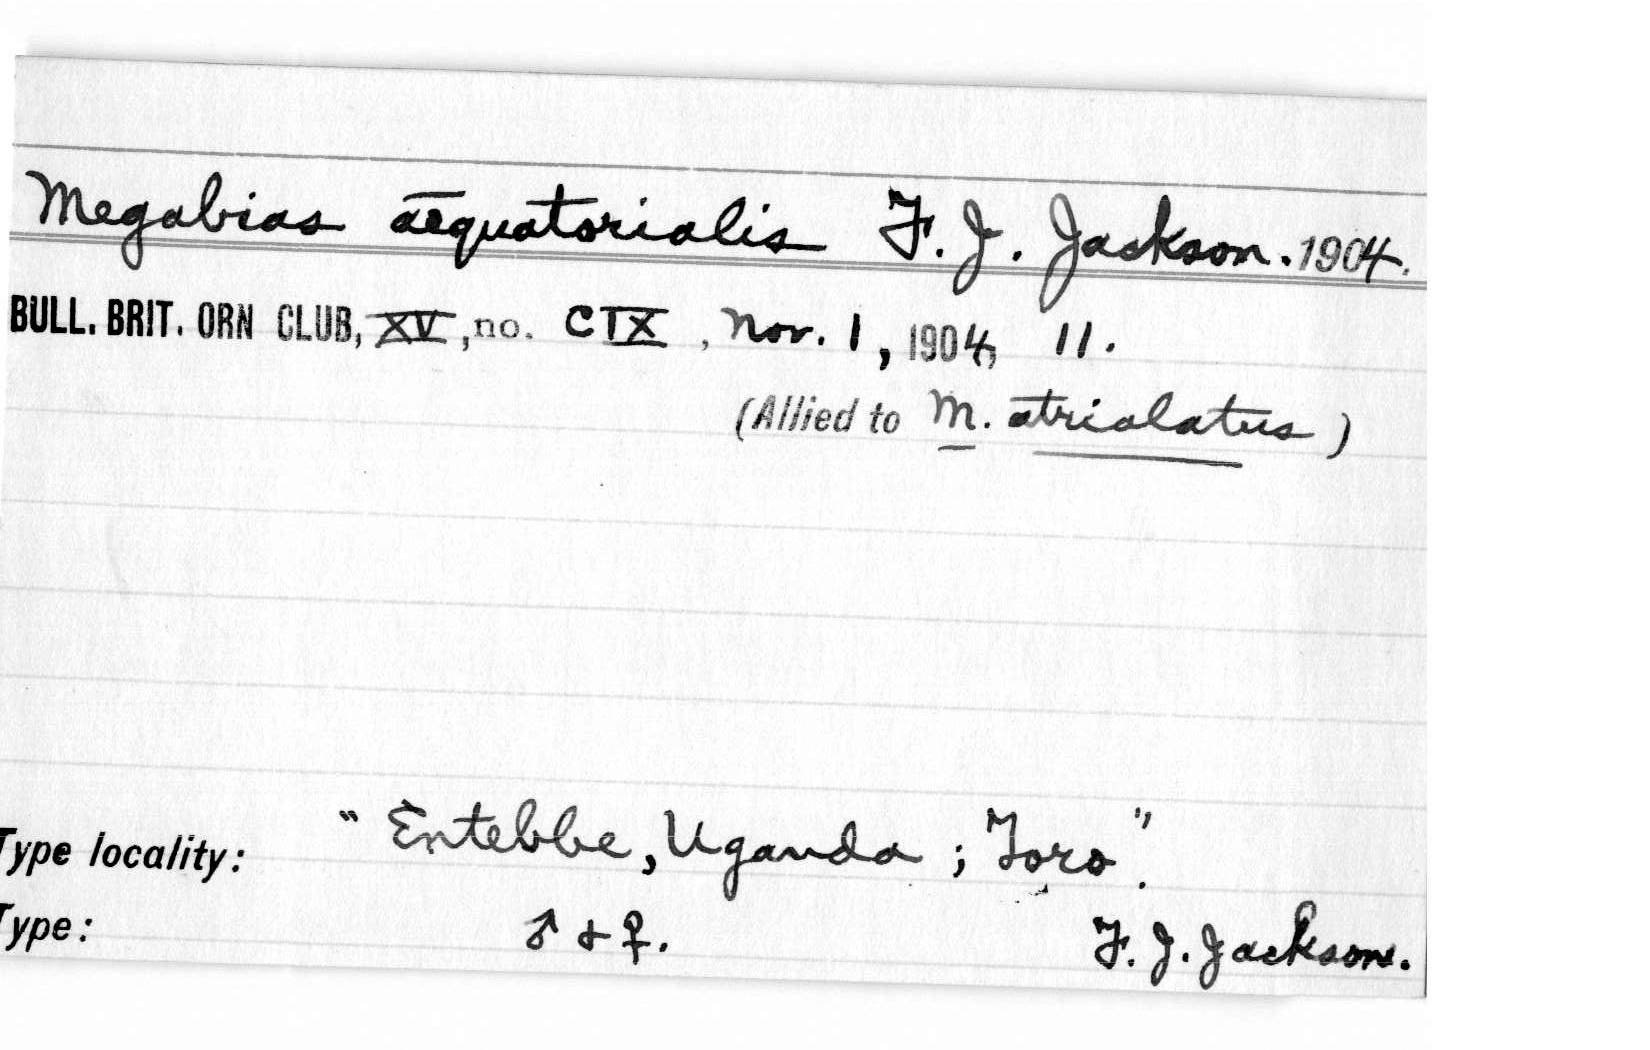 Megabias aequatorialis F. J. Jackson. 1904.
BULL. BRIT. ORN CLUB, XV, no. CIX, Nov. 1, 1904, 11.
(Allied to M. atrialatus)
Type locality: "Entebbe, Uganda; Toro".
Type: ♂ + ♀. F. J. Jackson.